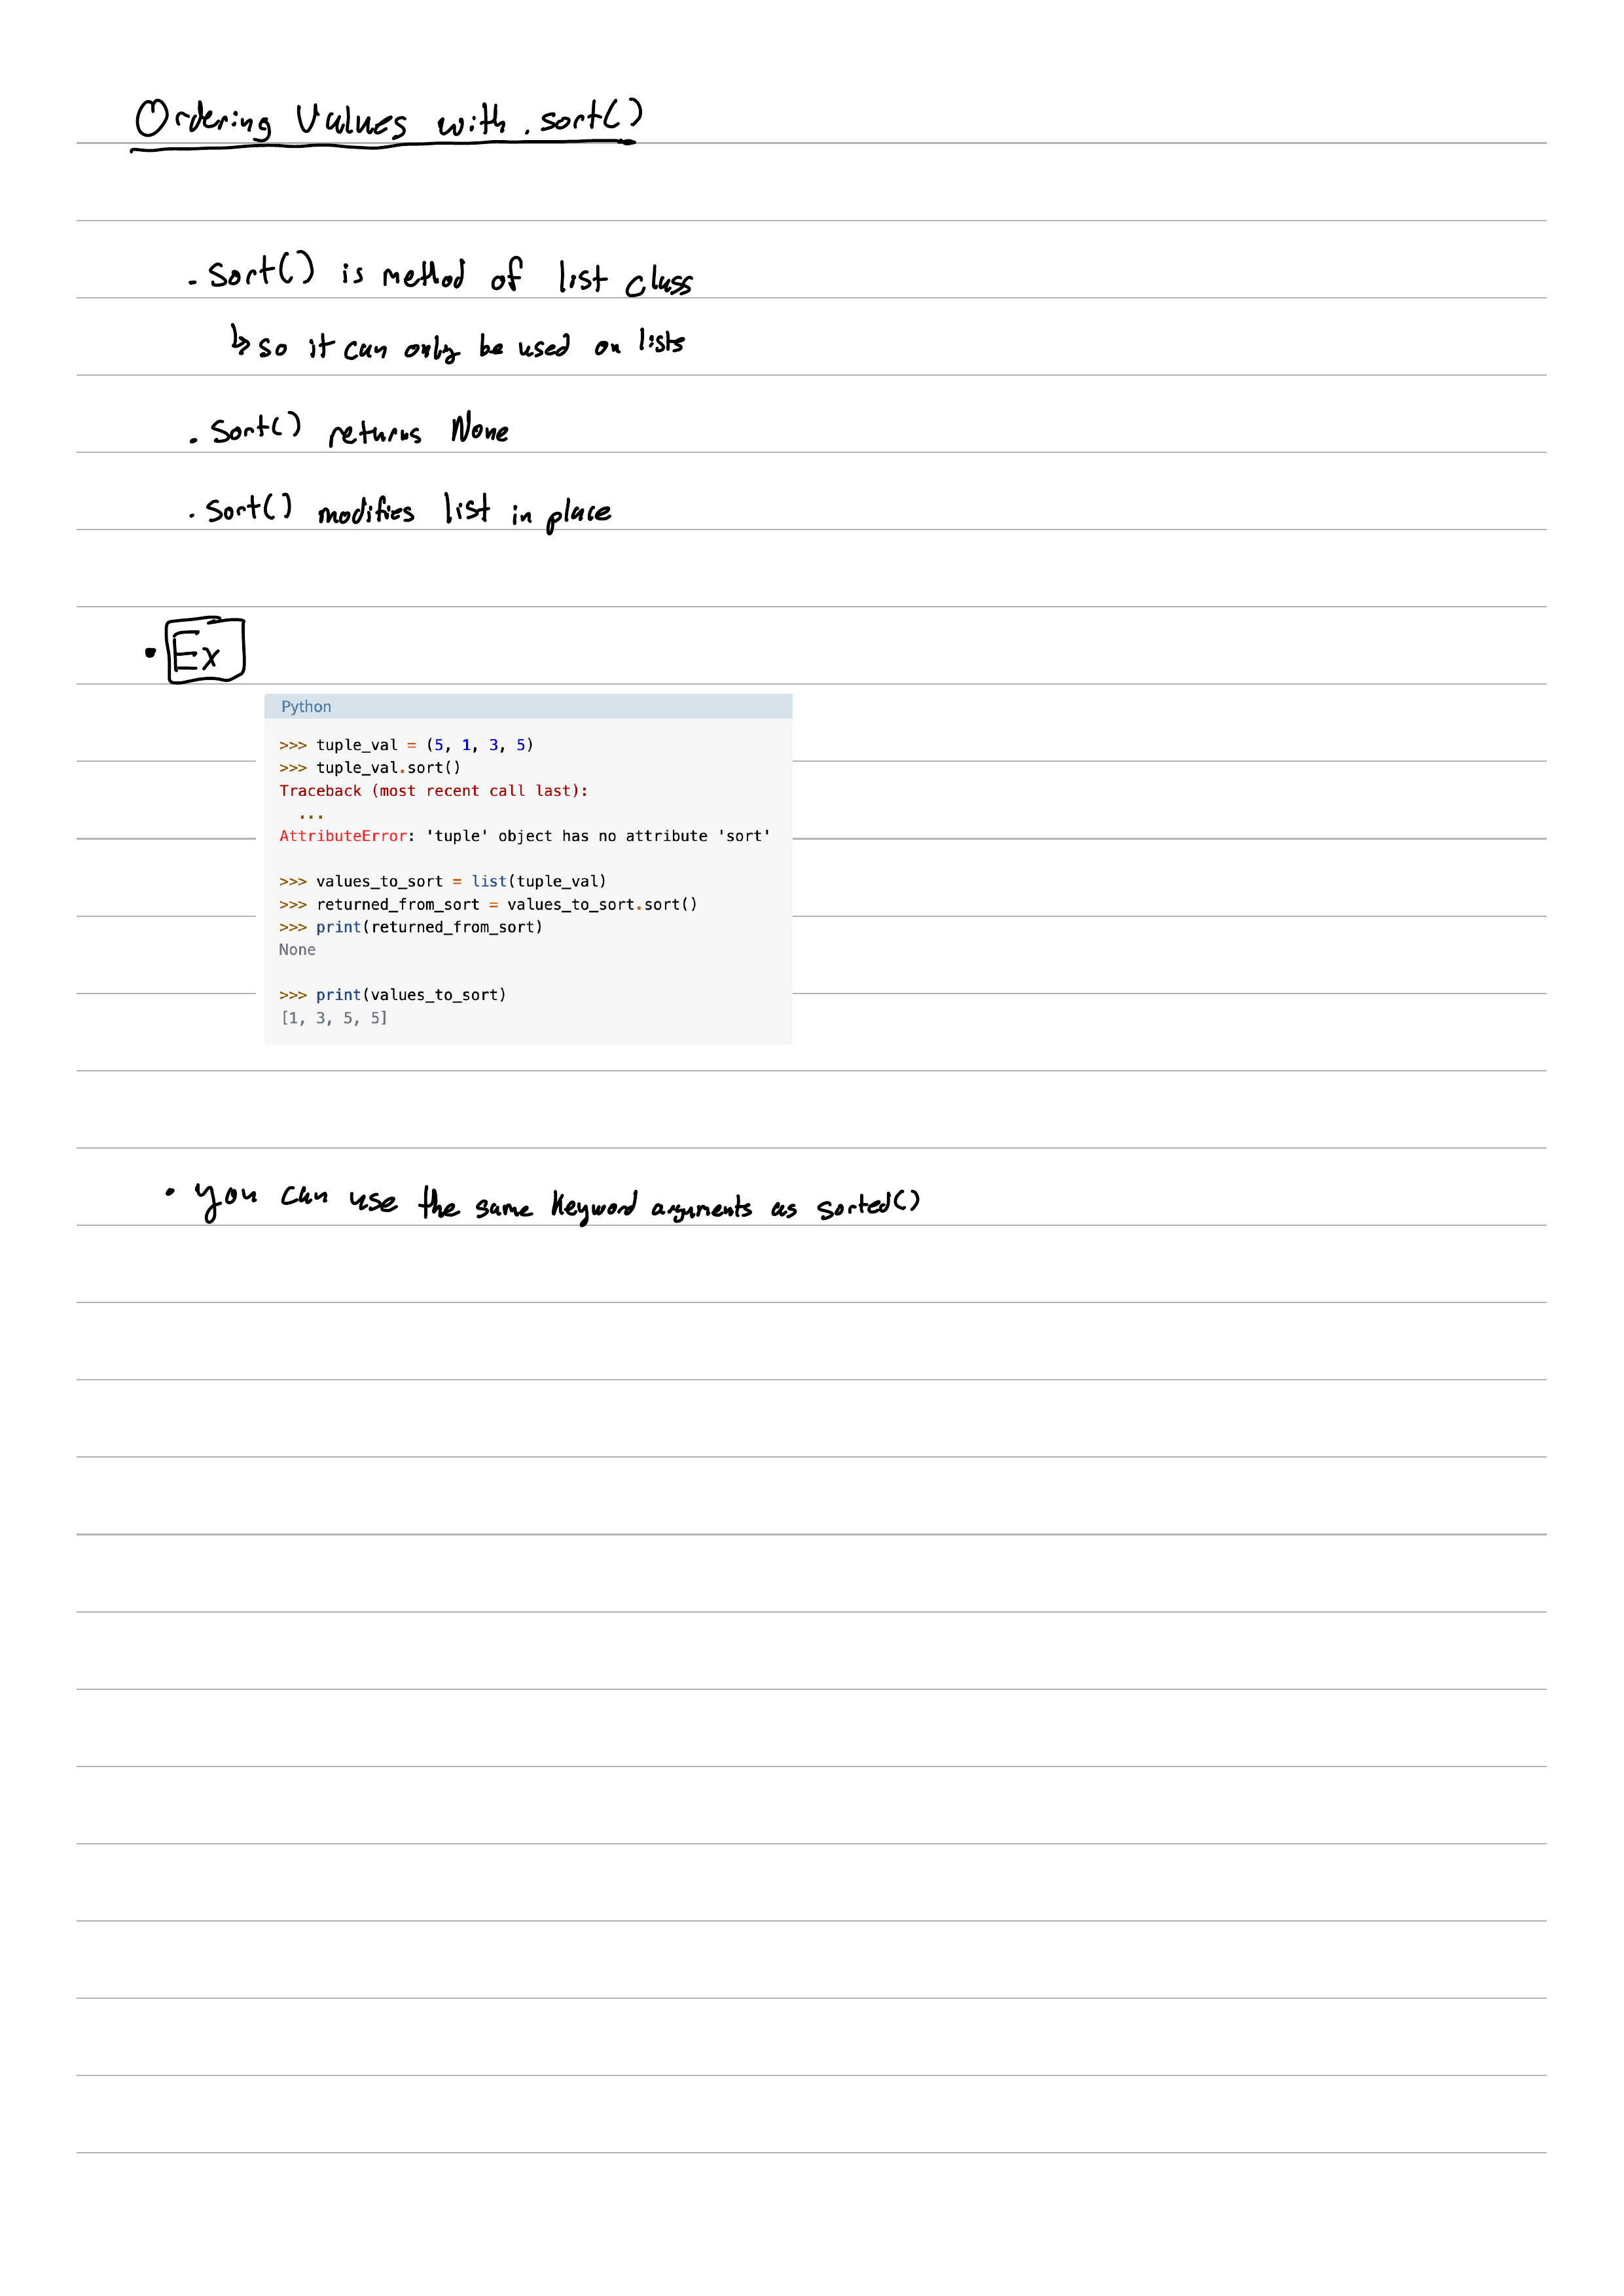 Ordering Values with .sort()
. Sort() is method of list class
↳ so it can only be used on lists
. Sort() returns None
. Sort() modifies list in place
• Ex
Python
>>> tuple_val = (5, 1, 3, 5)
>>> tuple_val.sort()
Traceback (most recent call last):
  ...
AttributeError: 'tuple' object has no attribute 'sort'
>>> values_to_sort = list(tuple_val)
>>> returned_from_sort = values_to_sort.sort()
>>> print(returned_from_sort)
None
>>> print(values_to_sort)
[1, 3, 5, 5]
• you can use the same keyword arguments as sorted()